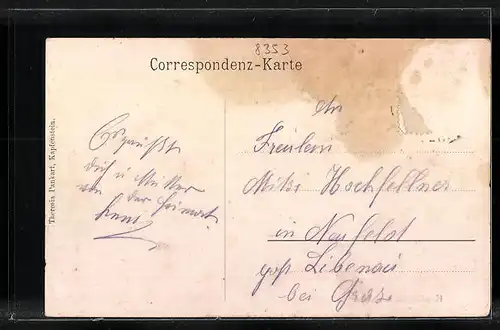 8353
Correspondenz-Karte
An
Fräulein
Mitzi Hochfellner
in Neufeld
post Liebenau
bei Graz
Es grüßt
Dich u Mutter
aus der Heimat
Theresia Pankart, Kapfenstein.